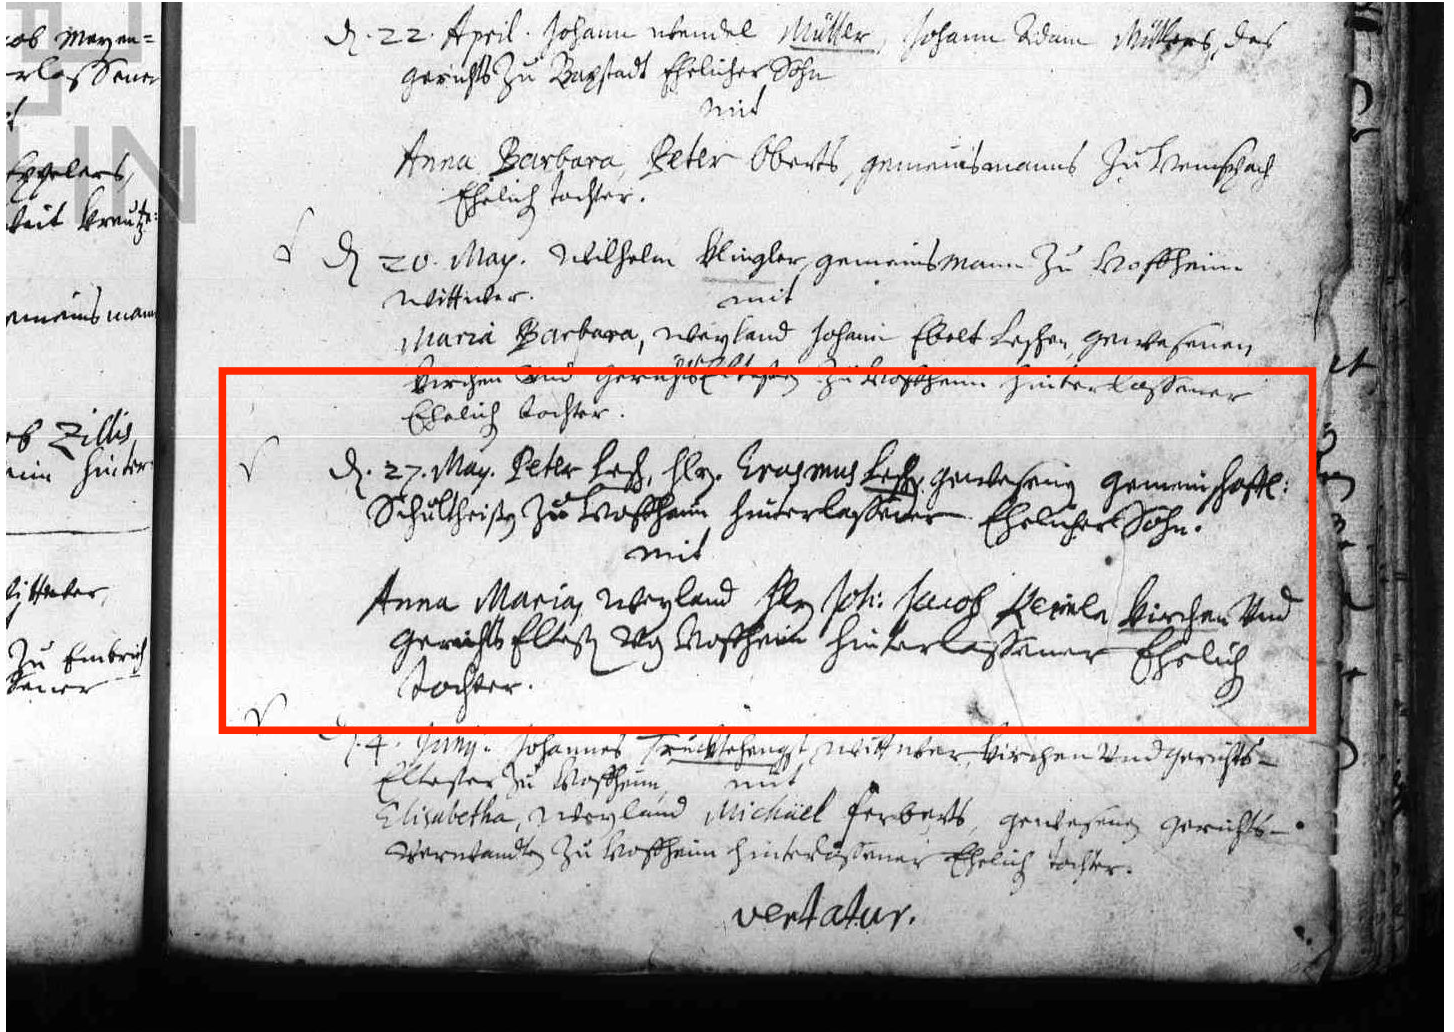 ob Meyen=
erlassener
Eppelers,
Veit Kreutz:
emeinsmann
ob Zillis,
hinter
Wittwer,
Zu Embrich
sener
LIN
d. 22. April. Johann Wendel Müller, Johann Adam Müllers, des
gerichts Zu Barstadt Ehelicher Sohn
mit
Anna Barbara, Peter Oberts, gemeinsmanns Zu
Ehelich tochter.
d 20. May. Wilhelm Klingler, gemeinsmann Zu Hoffheim
Wittwer. mit
Maria Barbara, weyland Johann Ebelt Leschen, gewesenen
Kirchen und gerichts Eltesten Zu Hoffheim hinterlassener
Ehelich tochter.
d. 27. May. Peter Lesch, Hln. Erasmus Lesch, gewesenen gemeinschaftl:
Schultheißen Zu Hoffheim hinterlassener Ehelicher Sohn.
mit
Anna Maria, weyland Hln Joh: Jacob Kirchen Und
gerichts Eltesten Zu Hoffheim hinterlassener Ehelich
tochter.
d. 4. Juny. Johannes Wittwer, Kirchen Und gerichts=
Eltester Zu Hoffheim, mit
Elisabetha, weyland Michäel Ferberts, gewesenen gerichts=
verwandten Zu Hoffheim hinterlassener Ehelich tochter.
vertatur.